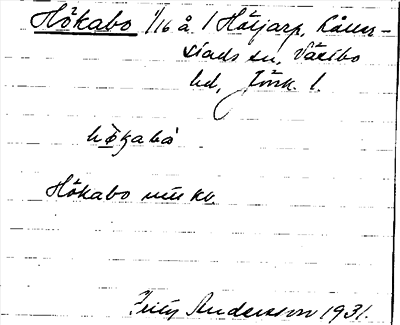 Hökabo 1/16 å 1 Hötjarp, Kåver-
stads sn, Västbo
hd, Jönk. l.
hökabo
Hökabo
Fritz Andersson 1931.